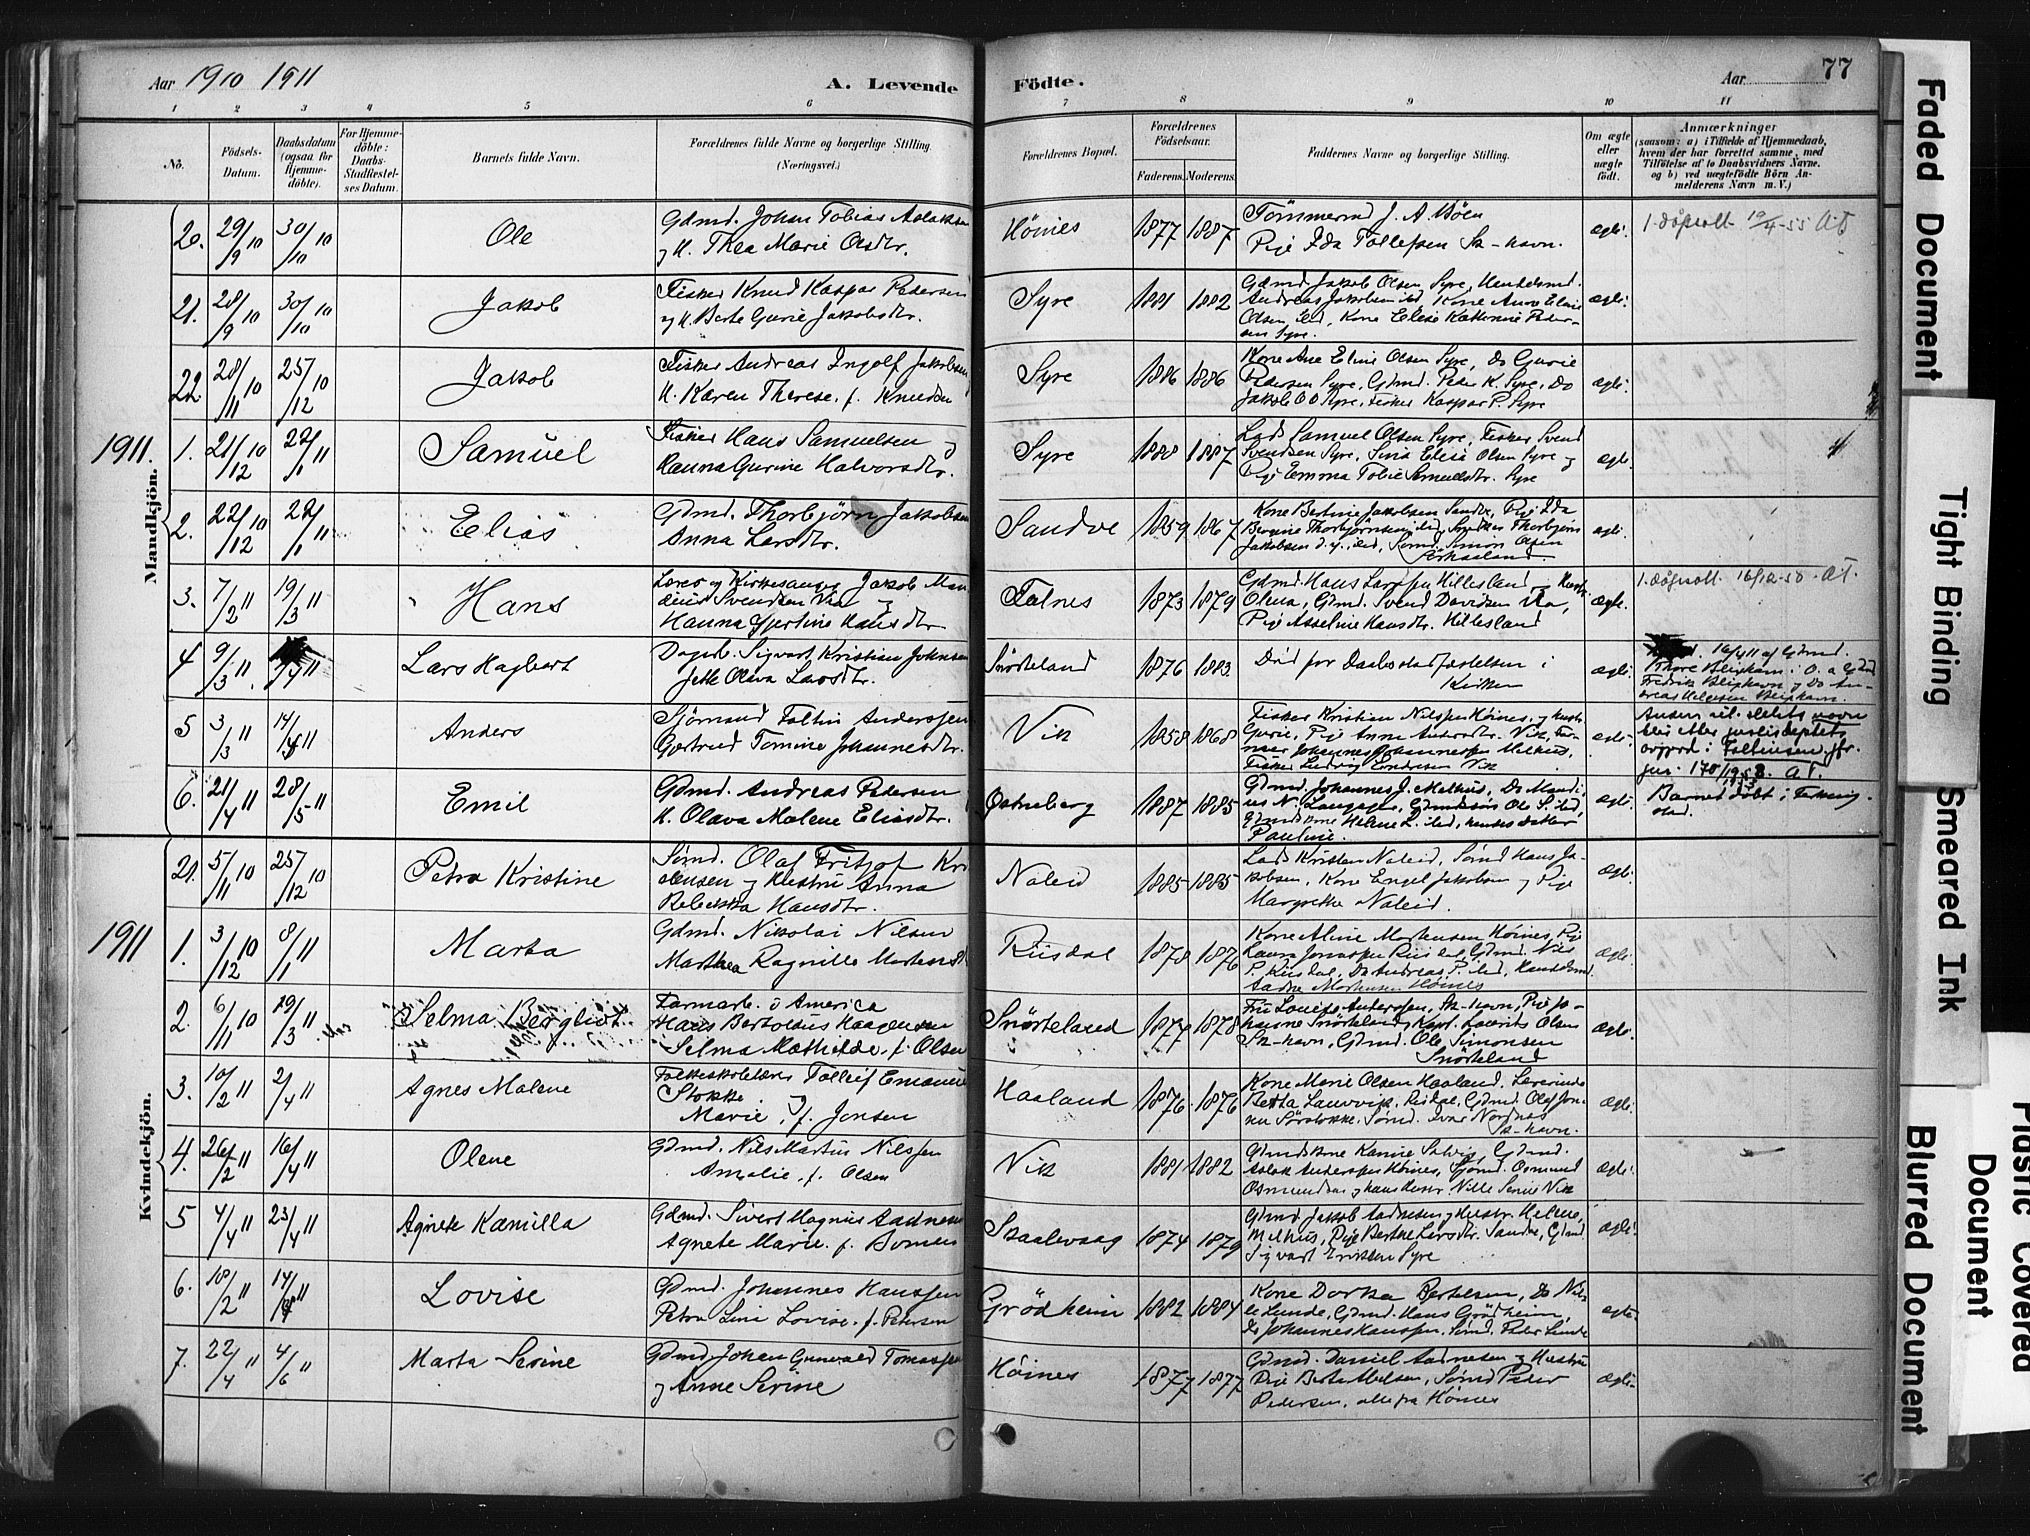 Aar 1910 1911
A. Levende
Födte.
Aar
77
1 2 3 4 5 6 7 8 9 10 11
No.
Födsels-
Datum.
Daabsdatum
(ogsaa for
Hjemme-
döbte).
For Hjemme-
döbte:
Daabs-
Stadfæstel-
ses Datum.
Barnets fulde Navn.
Forældrenes fulde Navne og borgerlige Stilling
(Næringsvei.)
Forældrenes Bopæl.
Forældrenes
Födselsaar.
Faderens. Moderens.
Faddernes Navne og borgerlige Stilling.
Om ægte
eller
uægte
født.
Anmærkninger
(saasom: a) i Tilfælde af Hjemmedaab,
hvem der har forrettet samme, med
Tilføielse af to Daabsvidners Navne.
og b) ved uægtefödte Börn An-
melderens Navn m. V.)
Mandkjön.
20. 29/9 10 30/10 10 Ole
Gdmd. Johan Tobias Aslaksen
og H. Thea Marie Olsdtr.
Höines 1877 1887
Pige Ida Tollefsen Sk-havn.
ægte.
21. 28/9 10 30/10 10 Jakob
Fisker Knud Kaspar Pedersen
og H. Berte Gurie Jakobsdtr.
Syre 1881 1882
Gdmd. Jakob Olsen Syre, Handelsmd.
Andreas Jakobsen ibd Kone Anne Eline
Olsen ibd, Kone Elise Katherine Peder-
sen Syre.
ægte.
22 28/11 10 25/12 10 Jakob
Fisker Andreas Ingolf Jakobsen
H. Karen Therese, f. Knudsen
Syre 1886 1886
Kone Ane Eline Olsen Syre, Do Gurie
Pedersen Syre, Gdmd. Peder K. Syre, Do
Jakob O O Syre, Fisker Kaspar P. Syre
ægte.
1911. 1. 21/12 10 22/1 11 Samuel
Fisker Hans Samuelsen og
Hanna Gurine Halvorsdtr.
Syre 1888 1887
Lods Samuel Olsen Syre, Fisker Svend
Svendsen Syre, Elise Olsen Syre og
Pige Emma Tobie Samuelsdtr. Syre
ægte.
2. 22/12 10 22/1 11 Elias
Gdmd. Thorbjörn Jakobsen
Anna Larsdtr.
Sandve 1859 1867
Kone Bertine Jakobsen Sandve, Pige Ida
Bergine Thorbjörnsen ibd, Thorbjörn
Jakobsen d.y., ibd, Sömd. Simon Olsen
ægte.
3. 7/2 11 19/3 11 Hans
Lærer og Kirkesanger Jakob Man
dius Svendsen Vea og
Hanna Gjertine Hansdtr
Falnes 1873 1879
Gdmd. Hans Larssen Hillesland og Hustr.
Olena, Gdmd. Svend Davidsen Vea,
Pige Asseline Hansdtr. Hillesland
ægte.
4 9/3 11 /4 11 Lars Hagbart
Dagarb. Sigvart Kristian Johnsen
Jette Olava Larsdtr.
Snörteland 1876 1883.
Död for Daabsstadfæstelsen i
Kirken
ægte.
16/4 11 af Gdmd.
5 3/3 11 14/ 11 Anders
Sjömand Faltin Anderssen
Gertrud Tomine Johannesdtr.
Vik 1858 1868
Fisker Kristian Nilssen Höines, og Hustr.
Gurie, Pige Anne Vik,
Johannes Johannessen Melhus,
Fisker Ludvig Endresen Vik
Anders sit slekts navn
blei etter justisdeptets
avgjerd i Faltinsen jfr.
jur. 170/1953. A T.
6. 21/4 11 28/5 11 Emil
Gdmd. Andreas Pedersen
H. Olava Malene Eliasdtr.
Östneberg 1887 1885
Gdmd. Johannes J. Melhus,
Gdmdskone Helene L. ibd, hendes datter
Pauline.
ægte.
Barnet döbt i
Kvindekjön.
21. 5/11 10 25/12 10 Petra Kristine
Sömd. Olaf Fritjof Kri
stensen og Hustru Anna
Rebekka Hansdtr.
Naleid 1885 1885
Lods Kristen Naleid, Sömd Hans Ja-
kobsen, Kone Engel Jakobsen og Pige
Margrethe Naleid.
ægte.
1911 1. 3/12 10 8/1 11 Marta
Gdmd. Nikolai Nilsen
Marthea Ragnille Martens
Riisdal 1878 1876
Kone Aline Mortensen Höines, Pige
Laura Jonassen Riisdal, Gdmd. Nils
P. Riisdal, Do Andreas P. ibd, Handelsmd.
Aadne Mortensen Höines
ægte.
2. 6/11 10 19/3 11 Selma Bergliot
Farmarb. i America
Hans Bertoldus Haagensen
Selma Mathilde, f. Olsen
Snörteland 1877 1878
Fru Lovise Anderssen, Sk-havn, Pige Jo-
hanne Snörteland, Kapt. Laurits Olsen
Sk-havn, Gdmd. Ole Simonsen
Snörteland
ægte.
3. 10/2 11 2/4 11 Agnes Malene
Folkeskolelærer Tollëif Emanuel
Stokke og
Marie, f. Jonsen
Haaland 1876. 1876
Kone Marie Olsen Haaland. Lærerinde
Berta Lauvvik, Risdal, Gdmd. Olaf Jon-
sen Sörstokke. Sömd. Ivar Nordnes
Sk-havn.
ægte.
4. 26/2 11 16/4 11 Olene
Gdmd. Nils Martin Nilssen
Amalie, f. Olsen
Vik 1881 1882
Aslak Anderssen Höines, Sjömd. Osmund
Osmundsen og hans Hustr. Nille Serine Vik
ægte.
5 4/4 11 23/4 11 Agnete Kamilla
Gdmd. Sivert Magnus Aadnesen
Agnete Marie, f.
Skaalevaag 1874 1879
Gdmd. Jakob Aadnesen og Hustr. Helene,
Melhus, Pige Berthe Larsdtr. Sandve, Gdmd.
Sigvart Eriksen Syre
ægte.
6. 18/2 11 14/ 11 Lovise
Gdmd. Johannes Hanssen
Petra Lini Lovise, f. Petersen
Grödheim 1882 1884
Kone Dorka Bertelsen,
Lunde, Gdmd. Hans Grödheim,
Do Johannes Hanssen, Sömd. Peder Lunde
ægte.
7. 22/4 11 4/6 11 Marta Serine
Gdmd. Johan Grunvald Tomassen
og Anne Serine
Höines 1877 1877
Gdmd. Daniel Aadnesen og Hustru
Pige Berta Nilsen, Sömd Peder
Pedersen, alle fra Höines
ægte.
Faded Document
Tight Binding
Smeared Ink
Blurred Document
Plastic Covered
Document